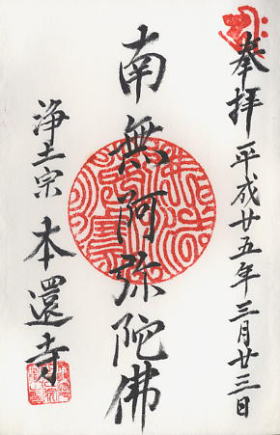 奉拝 平成廿五年三月廿三日
南無阿弥陀佛
浄土宗 本還寺